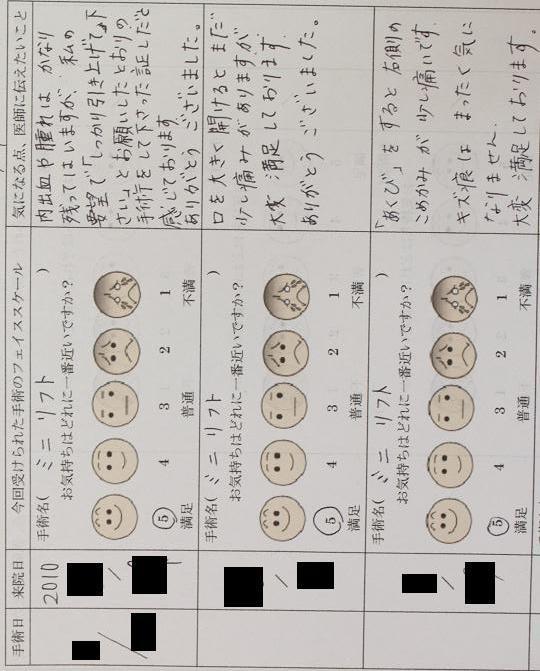 手術日 来院日 今回受けられた手術のフェイススケール 気になる点、医師に伝えたいこと
2010
/
/
手術名( ミニ リフト )
お気持ちはどれに一番近いですか？
5 4 3 2 1
満足 普通 不満
内出血や腫れは かなり
残ってはいますが、私の
要望で「しっかり引き上げて下
さい」とお願いしたとおりの
手術をして下さった証しだと
感じております
ありがとう ございました。
/
手術名( ミニ リフト )
お気持ちはどれに一番近いですか？
5 4 3 2 1
満足 普通 不満
口を大きく開けるとまだ
少し痛みがありますが
大変 満足しております
ありがとう ございました。
/
手術名( ミニ リフト )
お気持ちはどれに一番近いですか？
5 4 3 2 1
満足 普通 不満
「あくび」を すると 右側の
こめかみ が 少し痛いです。
キズ痕は まったく気に
なりません。
大変 満足しております。